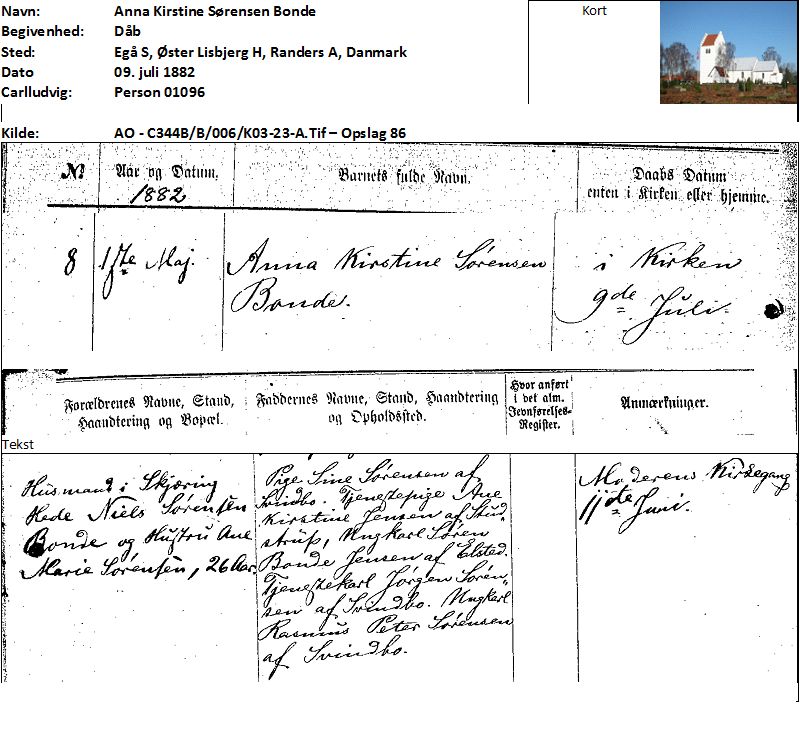 Navn: Anna Kirstine Sørensen Bonde
Begivenhed: Dåb
Sted: Egå S, Øster Lisbjerg H, Randers A, Danmark
Dato 09. juli 1882
Carlludvig: Person 01096
Kort
Kilde: AO - C344B/B/006/K03-23-A.Tif – Opslag 86
No. Aar og Datum. Barnets fulde Navn. Daabs Datum
1882 enten i Kirken eller hjemme.
8 17de Maj. Anna Kirstine Sørensen i Kirken
Bonde. 9de Juli.
Forældrenes Navne, Stand,
Haandtering og Bopæl.
Faddernes Navne, Stand, Haandtering
og Opholdssted.
Hvor anført
i det alm.
Jevnførelses-
Register.
Anmærkninger.
Tekst
Husmand i Skjøring
Hede Niels Sørensen
Bonde og Hustru Ane
Marie Sørensen, 26 Aar.
Pige Sine Sørensen af
Svindbo. Tjenestepige Ane
Kirstine Jensen af Stud-
strup, Ungkarl Søren
Bonde Jensen af Elsted.
Tjenestekarl Jørgen Søren-
sen af Svindbo. Ungkarl
Rasmus Peter Sørensen
af Svindbo.
Moderens Kirkegang
11te Juni.